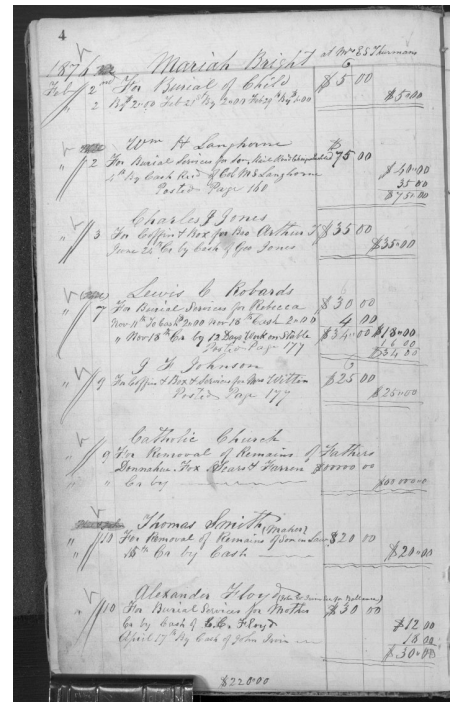 4
1876 Mariah Bright at Mrs E S Thurmans
Feb 2nd For Burial of Child $5 00
" 2 By 2.00 Feb 21st By 2.00 Feb 29th By 1.00 $5.00
Wm H Langhorne
" 2 For Burial Services for Son $75 00
By Cash Recd of Col M S Langhorne $40.00
Posted Page 160 35 00
$75.00
Charles J Jones
" 3 For Coffin & Box for Bro Arthur J $35 00
June 24th Cr by Cash of Geo Jones $35.00
Lewis C Robards
" 7 For Burial Services for Rebecca $30 00
Nov 11th To Cash 2.00 Nov 18th Cash 2.00 4 00
" Nov 18th Cr by 12 Days Work on Stable $34.00 $18.00
Posted Page 177 16 00
$34 00
J F Johnson
" 9 For Coffin & Box & Services for Mrs Witten $25 00
Posted Page 177 $25.00
Catholic Church
" 9 For Removal of Remains of Fathers
Donnahue, Fox, Sears & Farren $00000 00
" " Cr by $00000.00
Thomas Smith
" 10 For Removal of Remains of Son in Law $20 00
" 15th Cr by Cash $20.00
Alexander Floyd
" 10 For Burial Services for Mother $30 00
Cr by Cash of C.C. Floyd $12 00
April 17th By Cash of John Irvin 18 00
$30.00
$220.00